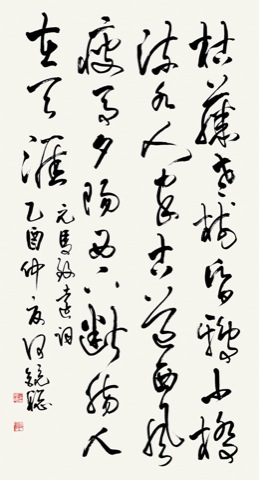 枯藤老樹昏鴉小橋
流水人家古道西風
瘦馬夕陽西下斷腸人
在天涯
元馬致遠詞
乙酉仲夏何鏡聰